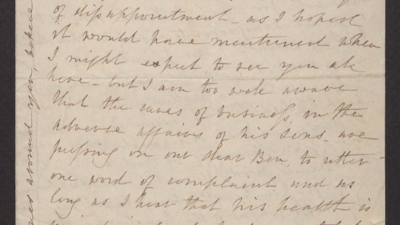 of disappointment - as I hoped
it would have mentioned when
I might expect to see you all
here - but I am too well aware
that the cares of business, in the
adverse affairs of his sons - are
pressing on our dear Ben, to utter
one word of complaint and as
long as I hear that his health is